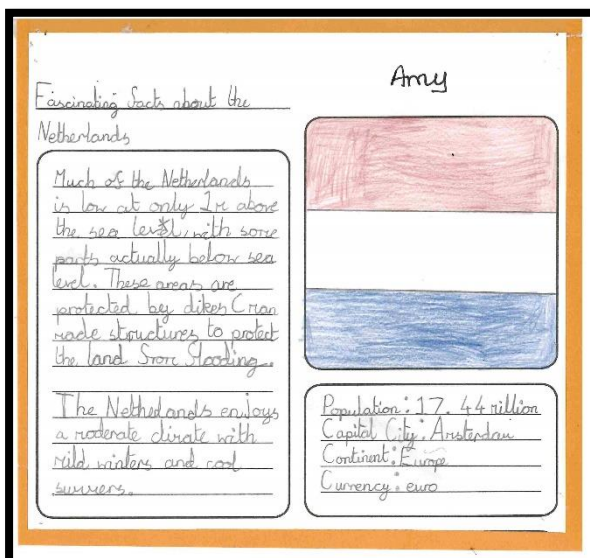 Amy
Fascinating facts about the
Netherlands
Much of the Netherlands
is low at only 1m above
the sea level, with some
parts actually below sea
level. These areas are
protected by dikes (man
made structures to protect
the land from flooding.
The Netherlands enjoys
a moderate climate with
mild winters and cool
summers.
Population: 17.44 million
Capital City: Amsterdam
Continent: Europe
Currency: euro